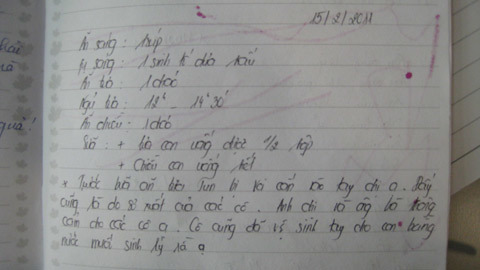 15/2/2011
Ăn sáng: 1 súp
Ău sáng: 1 sinh tố dưa hấu
Ăn trưa: 1 cháo
Ngủ trưa: 12h - 14h30'
Ăn chiều: 1 cháo
Sữa: + trưa con uống được 1/2 hộp
+ Chiều con uống hết
* Trước bữa ăn trưa Jun bị và cắn vào tay chị ạ. Đấy
cũng là do sơ suất của các cô. Anh chị và ông bà thông
cảm cho các cô ạ. Cô cũng đã vệ sinh tay cho con bằng
nước muối sinh lý rồi ạ
quả!